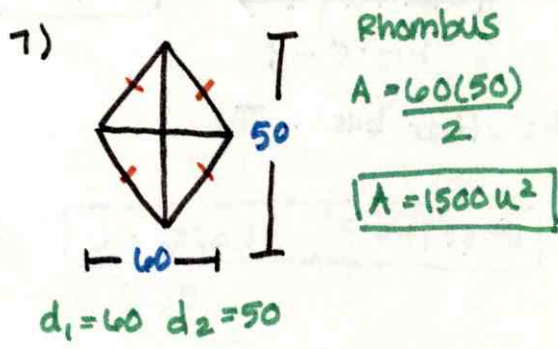 7)
50
60
d₁ = 60 d₂ = 50
Rhombus
A = 60(50)
2
A = 1500 u²